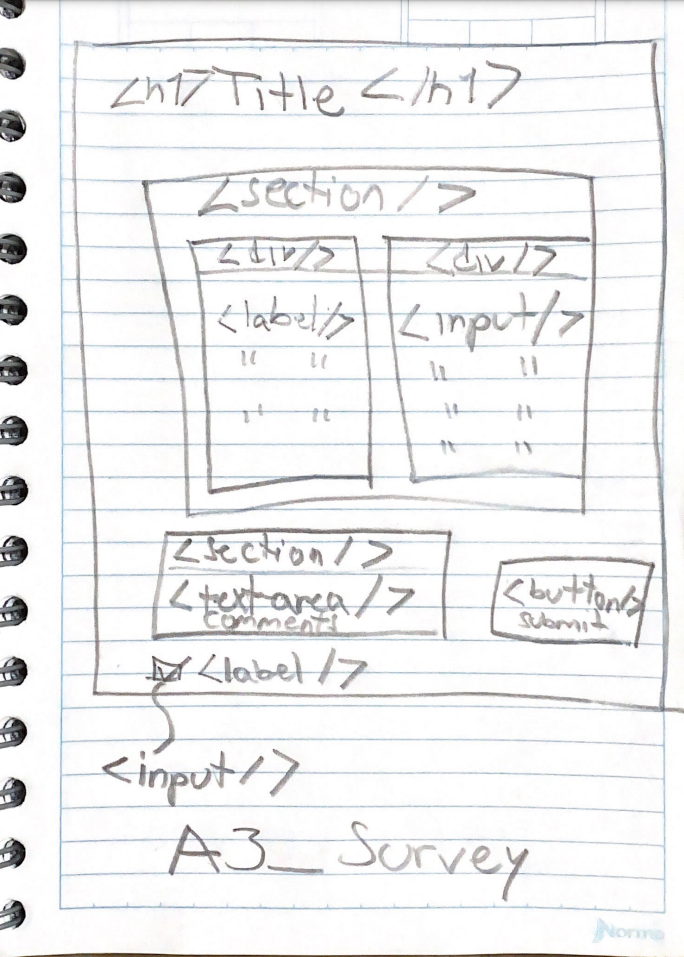 <h1> Title </h1>
<section/>
<div/> <div/>
<label/> <input/>
" " " "
" " " "
" "
<section/>
<textarea/>
comments
<button/>
submit
<label/>
<input/>
A3_Survey
Norma